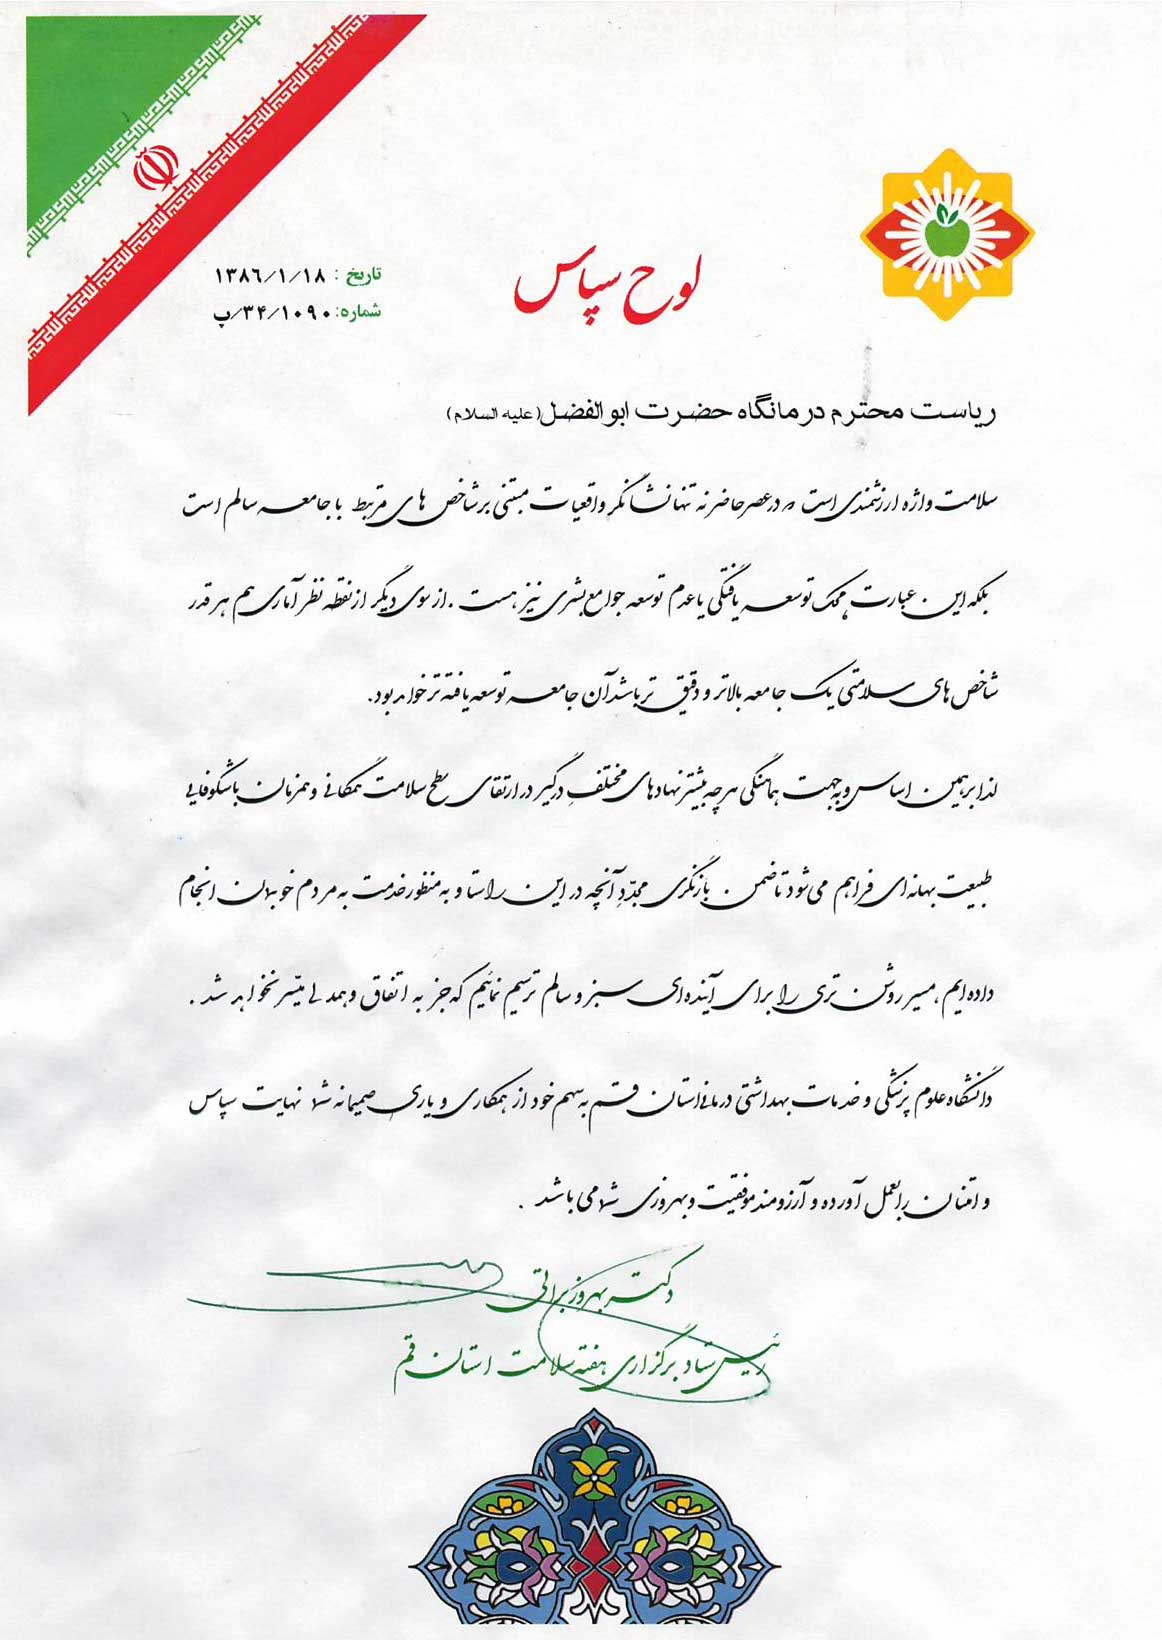 لوح سپاس
تاریخ : ۱۳۸۶/۱/۱۸
شماره: ۳۴/۱۰۹۰/پ
ریاست محترم درمانگاه حضرت ابوالفضل(علیه السلام)
سلامت واژه ارزشمندی است و در عصر حاضر نه تنها نشانگر واقعیات مبتنی بر شاخص های مرتبط با جامعه سالم است
بلکه این عبارت محک توسعه یافتگی یا عدم توسعه جوامع بشری نیز هست . از سوی دیگر از نقطه نظر آماری هم هر قدر
شاخص های سلامتی یک جامعه بالاتر و دقیق تر باشد آن جامعه توسعه یافته تر خواهد بود.
لذا بر همین اساس و به جهت هماهنگی هر چه بیشتر نهادهای مختلفِ درگیر در ارتقای سطح سلامت همگانی و همزمان با شکوفایی
طبیعت بهانه ای فراهم می شود تا ضمن بازنگری مجدّدِ آنچه در این راستا و به منظور خدمت به مردم خوبمان انجام
داده ایم ، مسیر روشن تری را برای آینده ای سبز و سالم ترسیم نمائیم که جز به اتفاق و همدلی میّسر نخواهد شد .
دانشگاه علوم پزشکی و خدمات بهداشتی درمانی استان قم به سهم خود از همکاری و یاری صمیمانه شما نهایت سپاس
و امتنان را بعمل آورده و آرزومند موفقیت و بهروزی شما می باشد .
دکتر بهروز براتی
رئیس ستاد برگزاری هفته سلامت استان قم